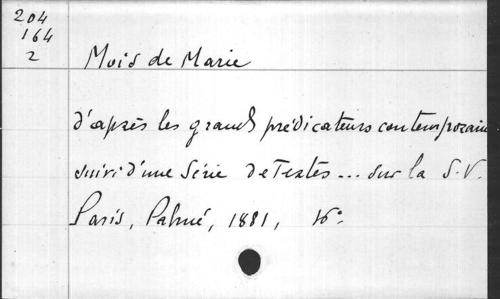 204
164
2
Mois de Marie
d'après les grands prédicateurs contemporains
suivi d'une Série de Textes ... sur la S.V.
Paris, Palmé, 1881, 16°